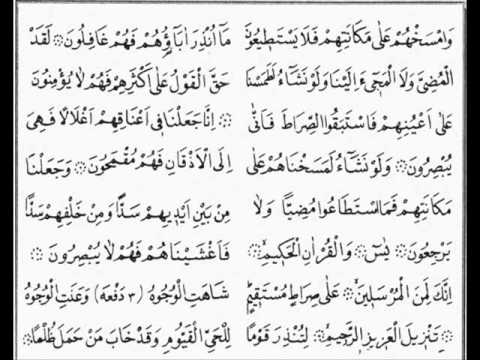 وَامْسَخْهُمْ عَلٰى مَكَانَتِهِمْ فَلَا يَسْتَطِيعُونَ
الْمُضِىَّ وَلَا الْمَجِىءَ اِلَيْنَا وَلَوْ نَشَاۤءُ لَطَمَسْنَا
عَلٰى اَعْيُنِهِمْ فَاسْتَبَقُوا الصِّرَاطَ فَاَنّٰى
يُبْصِرُونَ ۞ وَلَوْ نَشَاۤءُ لَمَسَخْنَاهُمْ عَلٰى
مَكَانَتِهِمْ فَمَا اسْتَطَاعُوا مُضِيًّا وَلَا
يَرْجِعُونَ ۞ يٰسۤ ۞ وَالْقُرْاٰنِ الْحَكِيمِ ۞
اِنَّكَ لَمِنَ الْمُرْسَلِينَ ۞ عَلٰى صِرَاطٍ مُسْتَقِيمٍ
۞ تَنْزِيلَ الْعَزِيزِ الرَّحِيمِ ۞ لِتُنْذِرَ قَوْمًا
مَاۤ اُنْذِرَ اٰبَاۤؤُهُمْ فَهُمْ غَافِلُونَ ۞ لَقَدْ
حَقَّ الْقَوْلُ عَلٰى اَكْثَرِهِمْ فَهُمْ لَا يُؤْمِنُونَ
۞ اِنَّا جَعَلْنَا فِى اَعْنَاقِهِمْ اَغْلَالًا فَهِىَ
اِلَى الْاَذْقَانِ فَهُمْ مُقْمَحُونَ ۞ وَجَعَلْنَا
مِنْ بَيْنِ اَيْدِيهِمْ سَدًّا وَمِنْ خَلْفِهِمْ سَدًّا
فَاَغْشَيْنَاهُمْ فَهُمْ لَا يُبْصِرُونَ ۞
شَاهَتِ الْوُجُوهُ (٣ دَفْعَه) وَعَنَتِ الْوُجُوهُ
لِلْحَىِّ الْقَيُّومِ وَقَدْ خَابَ مَنْ حَمَلَ ظُلْمًا ۞